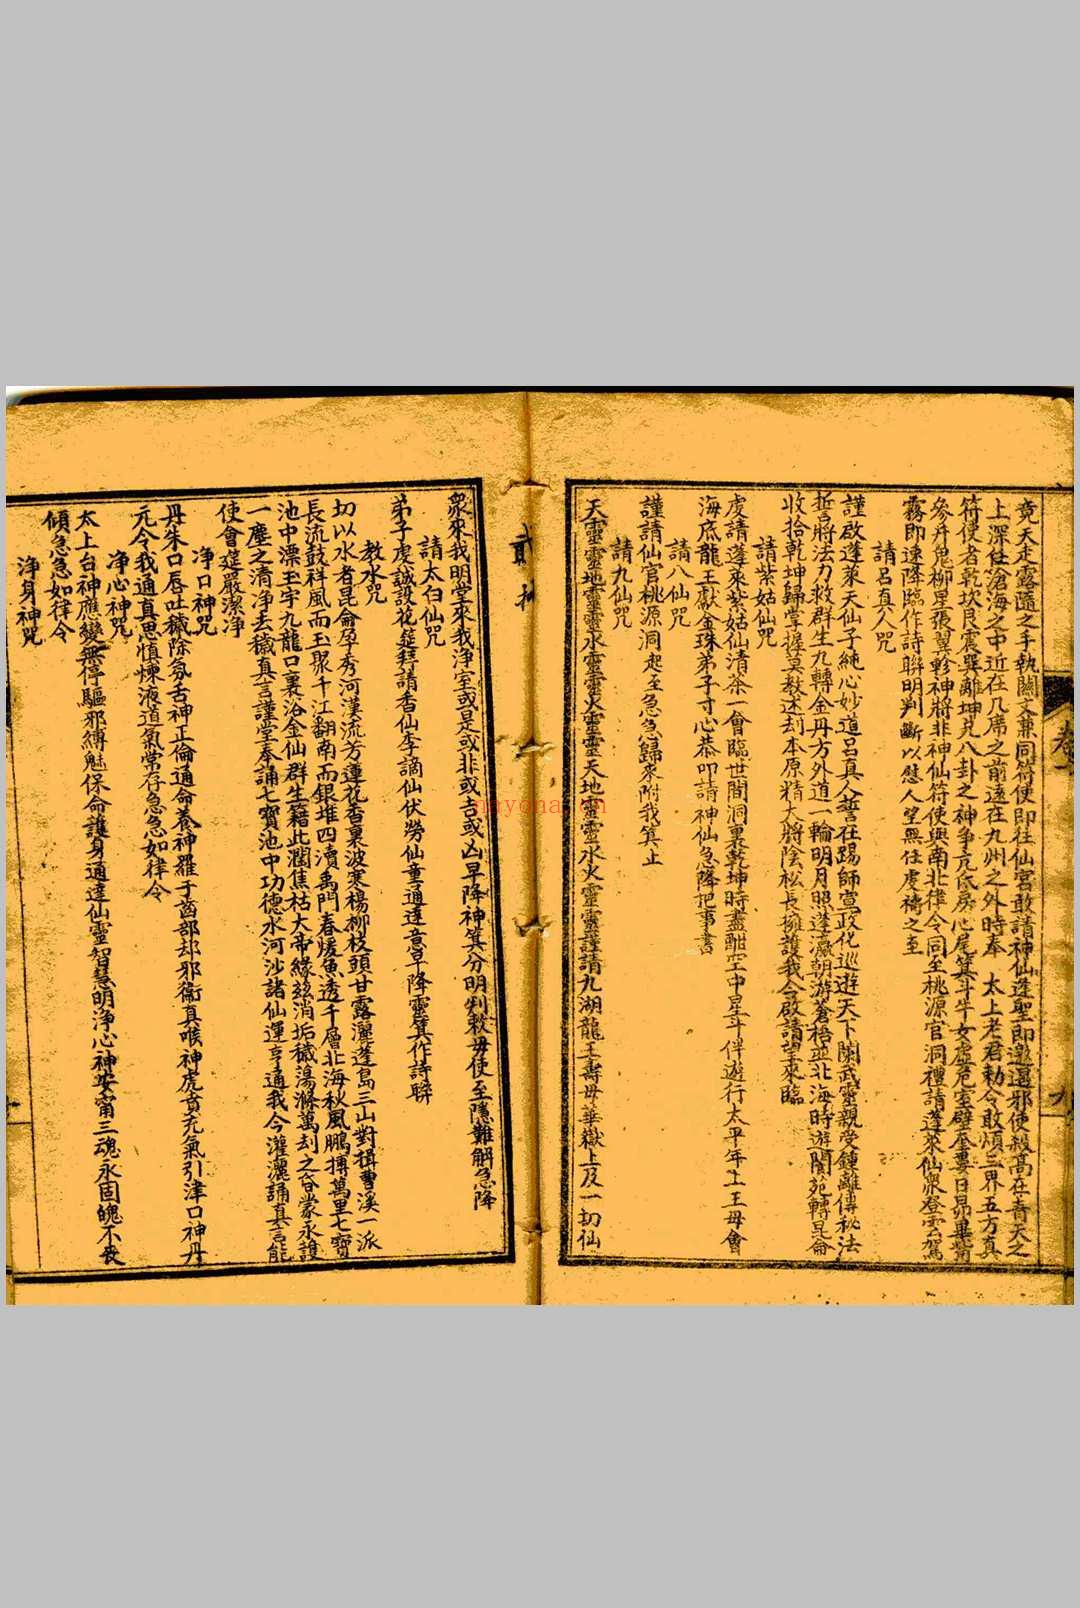 竟天走露隨之手執關文兼同符使即往仙宮敢請神仙逢聖即邀遇邪使殺高在青天之
上深在滄海之中近在几席之前遠在九州之外時奉 太上老君勅令敢煩三界五方真
符使者乾坎艮震巽離坤兌八卦之神爭亢氐房心尾箕斗牛女虛危室壁奎婁日昴畢觜
參井鬼柳星張翼軫神將非神仙符使與南北律令同至桃源官洞禮請蓬來仙眾登雲駕
霧即速降臨作詩聯明判斷以慰人望無任虔禱之至
請呂真人咒
謹啟蓬萊天仙子純心妙道呂真人誓在踢師宣政化巡遊天下闡武靈親受鍾離傳秘法
誓將法力救群生九轉金丹方外道一輪明月照蓬瀛朝游蒼梧並北海時遊閬苑轉昆侖
收拾乾坤歸掌握莫教迷刼本原精大將陰松長擁護我今啟請望來臨
請紫姑仙咒
虔請蓬來紫姑仙清茶一會臨世間洞裏乾坤時盡酣空中星斗伴遊行太平年上王母會
海底龍王獻金珠弟子寸心恭叩請神仙急降把事書
請八仙咒
謹請仙官桃源洞 起至急急歸來附我箕止
請九仙咒
天靈靈地靈靈水靈靈火靈靈天地靈靈水火靈靈謹請九湖龍王壽母華嶽上及一切仙
眾來我明堂來我淨室或是或非或吉或凶早降神箕分明判教毋使至隱難解急降
請太白仙咒
弟子虔誠設花筵拜請香仙李謫仙伏勞仙童通達意早降靈箕作詩聯
教水咒
切以水者昆侖孕秀河漢流芳蓮花香裏波寒楊柳枝頭甘露灑蓬島三山對楫曹溪一派
長流鼓祥風而玉聚千江翻南而銀堆四瀆禹門春煖魚透千層北海秋風鵬搏萬里七寶
池中漂玉宇九龍口裏浴金仙群生藉此潤焦枯大帝緣茲消垢穢湯滌萬刼之昏蒙永證
一塵之清淨去穢真言謹堂奉誦七寶池中功德水河沙諸仙運亨通我今灌灑誦真言能
使會筵嚴潔淨
淨口神咒
丹朱口唇吐穢除氛舌神正倫通命養神羅于齒部却邪衞真喉神虎賁充氣引津口神丹
元令我通真思慎煉液道氣常存急急如律令
淨心神咒
太上台神應變無停驅邪縛魅保命護身通達仙靈智慧明淨心神安甯三魂永固魄不喪
傾急急如律令
淨身神咒
nayona.cn